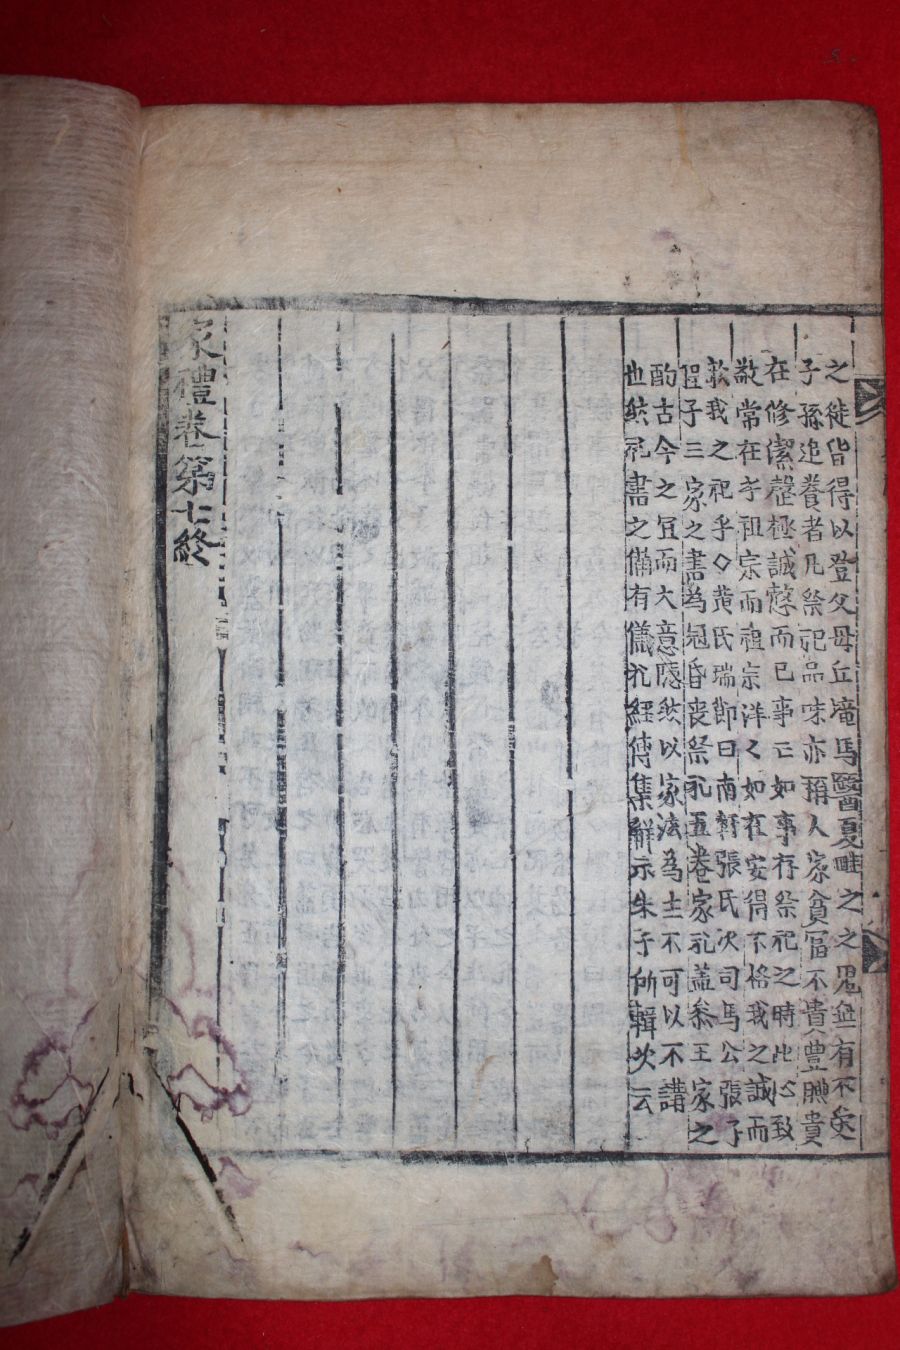 之徒皆得以登父母丘壠馬醫夏畦之之鬼無有不受
子孫追養者凡祭祀品味亦稱人家貧富不貴豊腆貴
在修潔罄極誠慤而已事亡如事存祭祀之時此心致
敬常在乎祖宗而祖宗洋〻如在安得不格我之誠而
歆我之祀乎◇黄氏瑞節曰南軒張氏次司馬公張子
程子三家之書為冠昏喪祭礼五卷家礼盖叅王家之
酌古今之冝而大意隠然以家法為主不可以不講
也然礼書之備有儀礼經傳集觧示朱子所輯次云
家禮卷第七終